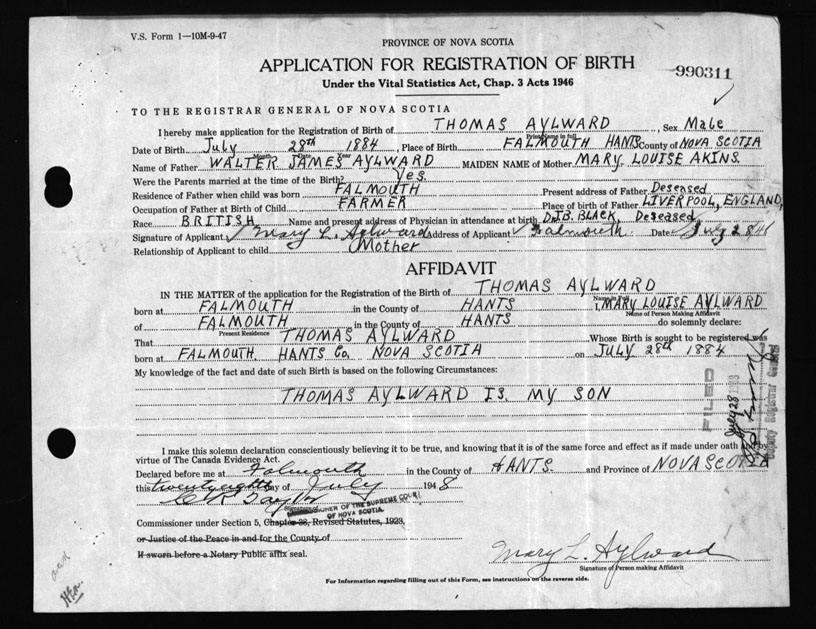 V.S. Form 1—10M-9-47
PROVINCE OF NOVA SCOTIA
APPLICATION FOR REGISTRATION OF BIRTH
990311
Under the Vital Statistics Act, Chap. 3 Acts 1946
TO THE REGISTRAR GENERAL OF NOVA SCOTIA
I hereby make application for the Registration of Birth of THOMAS AYLWARD, Sex Male
Print Name in full
Date of Birth July 28th 1884, Place of Birth FALMOUTH HANTS County of NOVA SCOTIA
Name of Father WALTER JAMES AYLWARD MAIDEN NAME of Mother MARY LOUISE AKINS.
Were the Parents married at the time of the Birth? Yes.
Residence of Father when child was born FALMOUTH Present address of Father Deseased
Occupation of Father at Birth of Child FARMER Place of birth of Father LIVERPOOL, ENGLAND,
Race BRITISH Name and present address of Physician in attendance at birth DJB. BLACK, Deseased
Signature of Applicant Mary L. Aylward Address of Applicant Falmouth. Date July 28/48
Relationship of Applicant to child Mother
AFFIDAVIT
IN THE MATTER of the application for the Registration of Birth of THOMAS AYLWARD
Name in Full
born at FALMOUTH in the County of HANTS I, MARY LOUISE AYLWARD
Name of Person Making Affidavit
of FALMOUTH in the County of HANTS do solemnly declare:
Present Residence
That THOMAS AYLWARD Whose Birth is sought to be registered was
born at FALMOUTH. HANTS Co, NOVA SCOTIA on JULY 28th 1884
My knowledge of the fact and date of such Birth is based on the following Circumstances:
THOMAS AYLWARD IS. MY SON
FILED
July 28
Deputy Registrar General
I make this solemn declaration conscientiously believing it to be true, and knowing that it is of the same force and effect as if made under oath by
virtue of The Canada Evidence Act.
Declared before me at Falmouth in the County of HANTS. and Province of NOVA SCOTIA
this twenty eighth day of July 1948
Signature of
COMMISSIONER OF THE SUPREME COURT
OF NOVA SCOTIA
Commissioner under Section 5, Chapter 38, Revised Statutes, 1923,
or Justice of the Peace in and for the County of
If sworn before a Notary Public affix seal.
Mary L. Aylward
Signature of Person making Affidavit
For Information regarding filling out of this Form, see instructions on the reverse side.